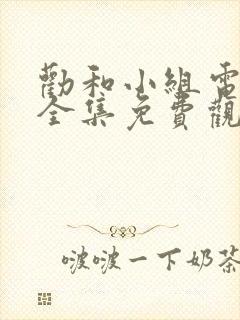 勸和小組電
全集免費觀
啵啵一下奶茶